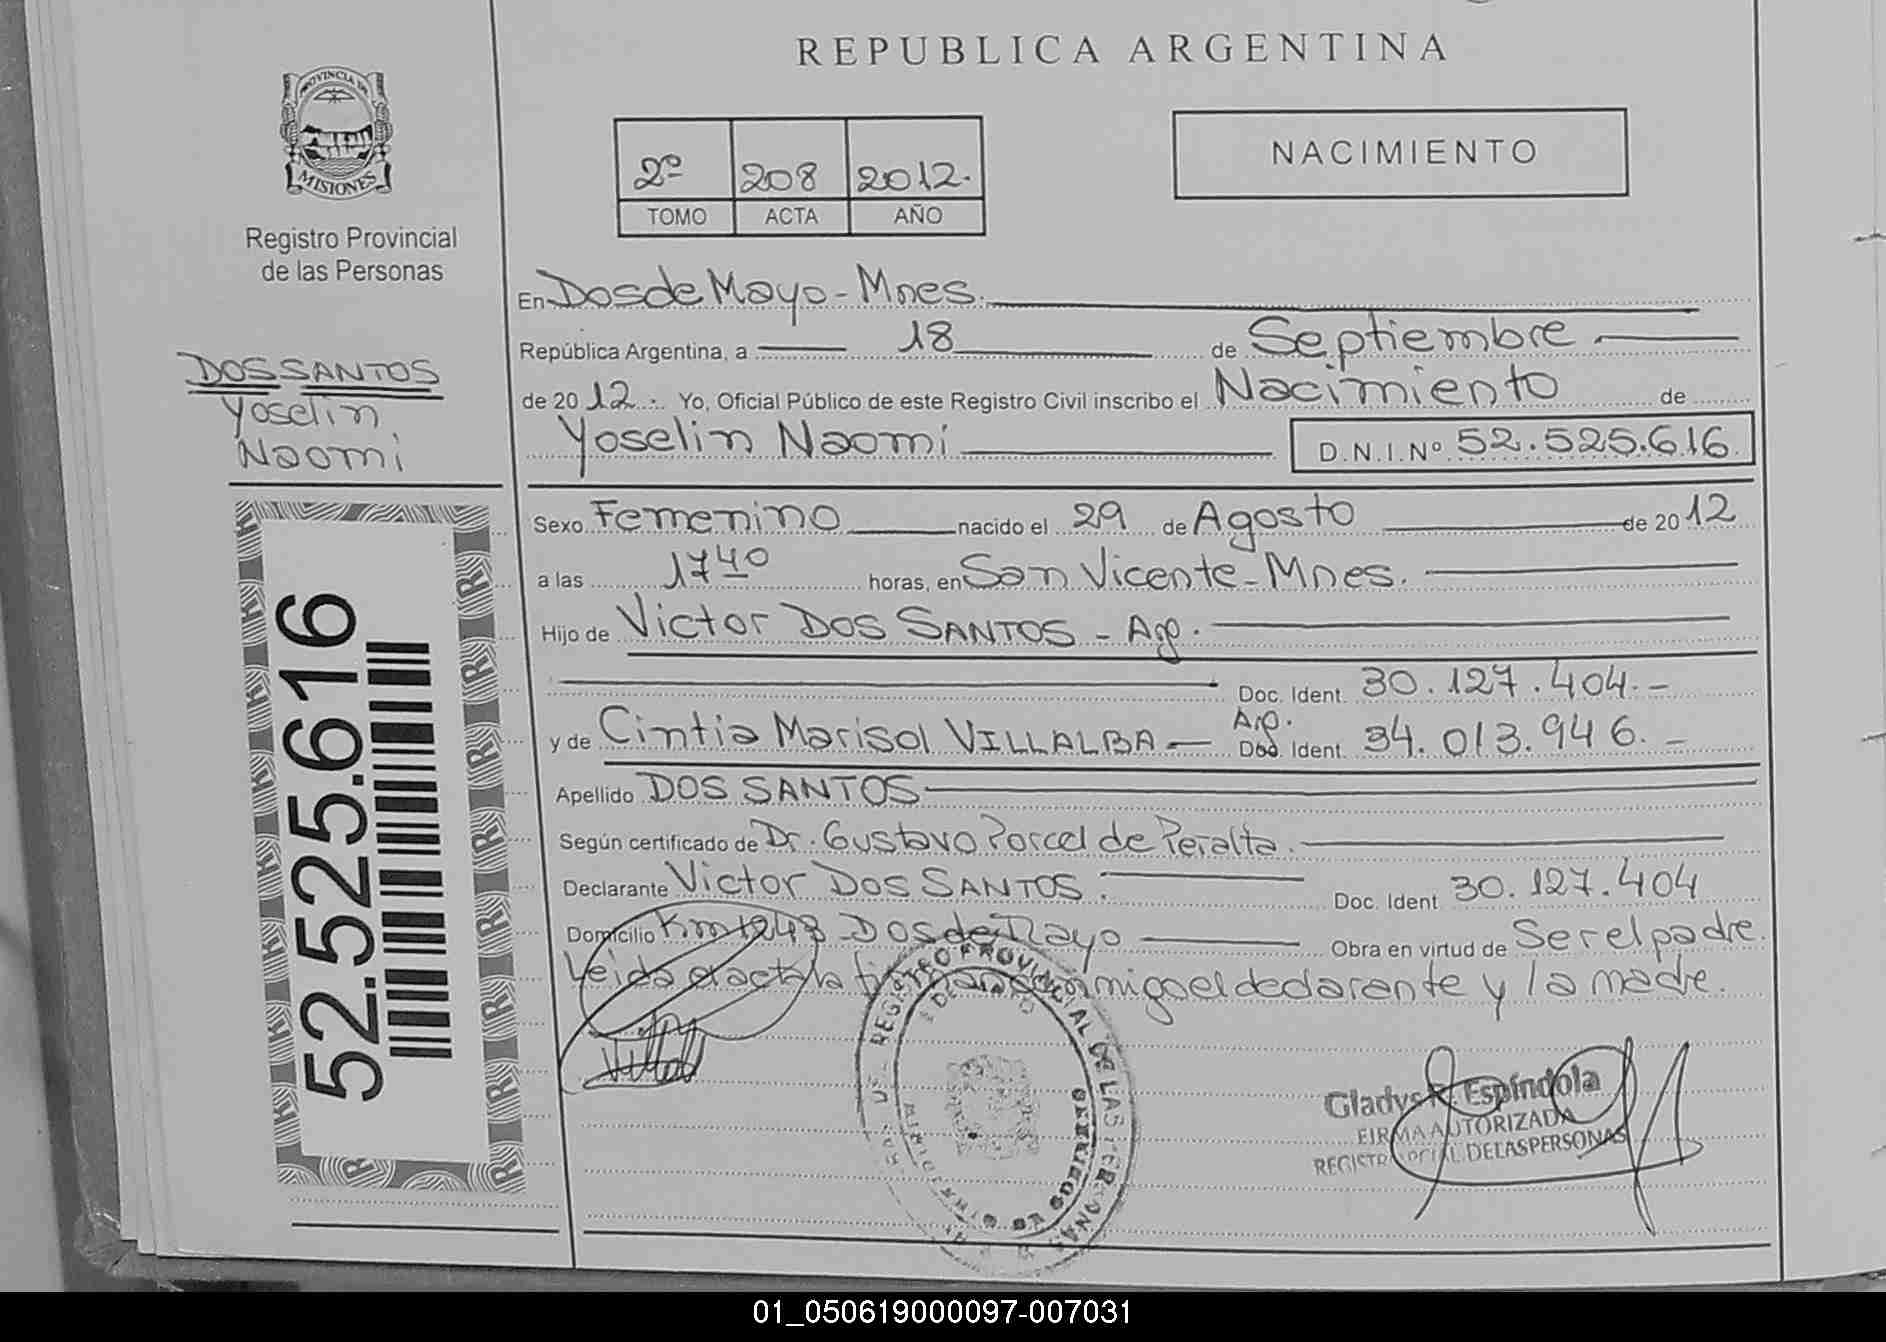 REPUBLICA ARGENTINA
PROVINCIA DE
MISIONES
Registro Provincial
de las Personas
2º 208 2012.
TOMO ACTA AÑO
NACIMIENTO
DOS SANTOS
Yoselin
Naomi
52.525.616
En Dos de Mayo - Mnes.
República Argentina, a 18 de Septiembre
de 2012. Yo, Oficial Público de este Registro Civil inscribo el Nacimiento de
Yoselin Naomi D.N.I. Nº 52.525.616
Sexo Femenino nacido el 29 de Agosto de 2012
a las 17 40 horas, en San Vicente - Mnes.
Hijo de Victor DOS SANTOS - Arg.
Doc. Ident. 30.127.404.-
y de Cintia Marisol VILLALBA - Arg. Doc. Ident. 34.013.946.-
Apellido DOS SANTOS
Según certificado de Dr. Gustavo Porcel de Peralta.
Declarante Victor DOS SANTOS. Doc. Ident 30.127.404
Domicilio Km 1243 - Dos de Mayo Obra en virtud de Ser el padre.
Leida el acta la firman conmigo el declarante y la madre.
REGISTRO PROVINCIAL DE LAS PERSONAS
Gladys Espíndola
FIRMA AUTORIZADA
REGISTRO PCIAL. DE LAS PERSONAS
01_050619000097-007031